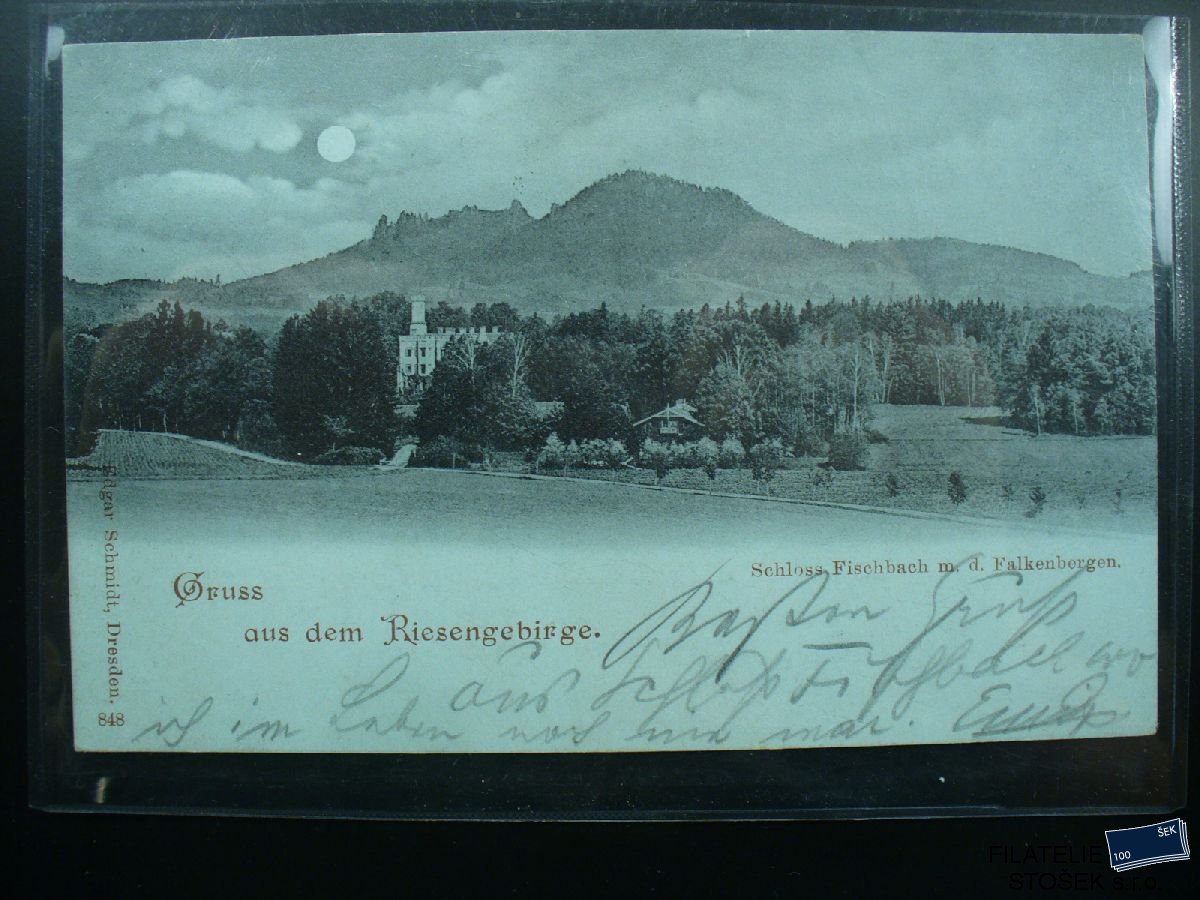 Schloss Fischbach m. d. Falkenbergen.
Gruss
aus dem Riesengebirge.
Besten Gruß
aus Schloß Fischbach wo
ich im Leben noch nie war.
Edgar Schmidt, Dresden.
848
ŠEK
100
FILATELIE
STOŠEK s.r.o.